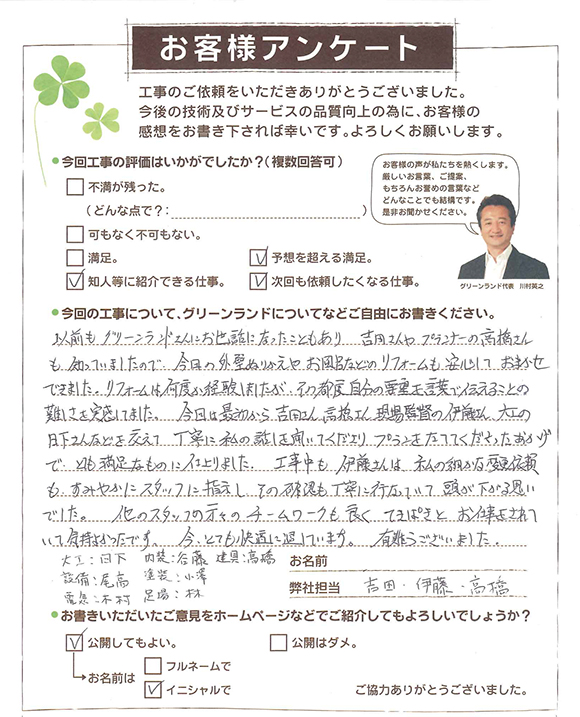 お客様アンケート
工事のご依頼をいただきありがとうございました。
今後の技術及びサービスの品質向上の為に、お客様の
感想をお書き下されば幸いです。よろしくお願いします。
今回工事の評価はいかがでしたか？（複数回答可）
不満が残った。
（どんな点で？：）
可もなく不可もない。
満足。
予想を超える満足。
知人等に紹介できる仕事。
次回も依頼したくなる仕事。
お客様の声が私たちを熱くします。
厳しいお言葉、ご提案、
もちろんお誉めの言葉など
どんなことでも結構です。
是非お聞かせください。
グリーンランド代表 川村英之
今回の工事について、グリーンランドについてなどご自由にお書きください。
以前もグリーンランドさんにお世話になったこともあり 吉田さんやプランナーの高橋さん
も知っていましたので、今回の外壁ぬりかえやお風呂などのリフォームも安心しておまかせ
できました。リフォームは何度か経験しましたが、その都度自分の要望を言葉で伝えることの
難しさを実感してました。今回は最初から吉田さん、高橋さん、現場監督の伊藤さん、大工の
日下さんなどを交えて丁寧に私の話しを聞いてくださり、プランをたててくださったおかげ
で、とても満足なものに仕上りました。工事中も伊藤さんは、私の細かな変更依頼
も、すみやかにスタッフに指示し、その確認も丁寧に行なっていて頭が下がる思い
でした。他のスタッフの方々のチームワークも良く、てきぱきとお仕事されて
いて気持よかったです。今、とても快適に過しています。有難うございました。
大工：日下 内装：合藤 建具：高橋
設備：尾高 塗装：小澤
電気：木村 足場：林
お名前
弊社担当 吉田・伊藤・高橋
お書きいただいたご意見をホームページなどでご紹介してもよろしいでしょうか？
公開してもよい。
公開はダメ。
お名前は
フルネームで
イニシャルで
ご協力ありがとうございました。